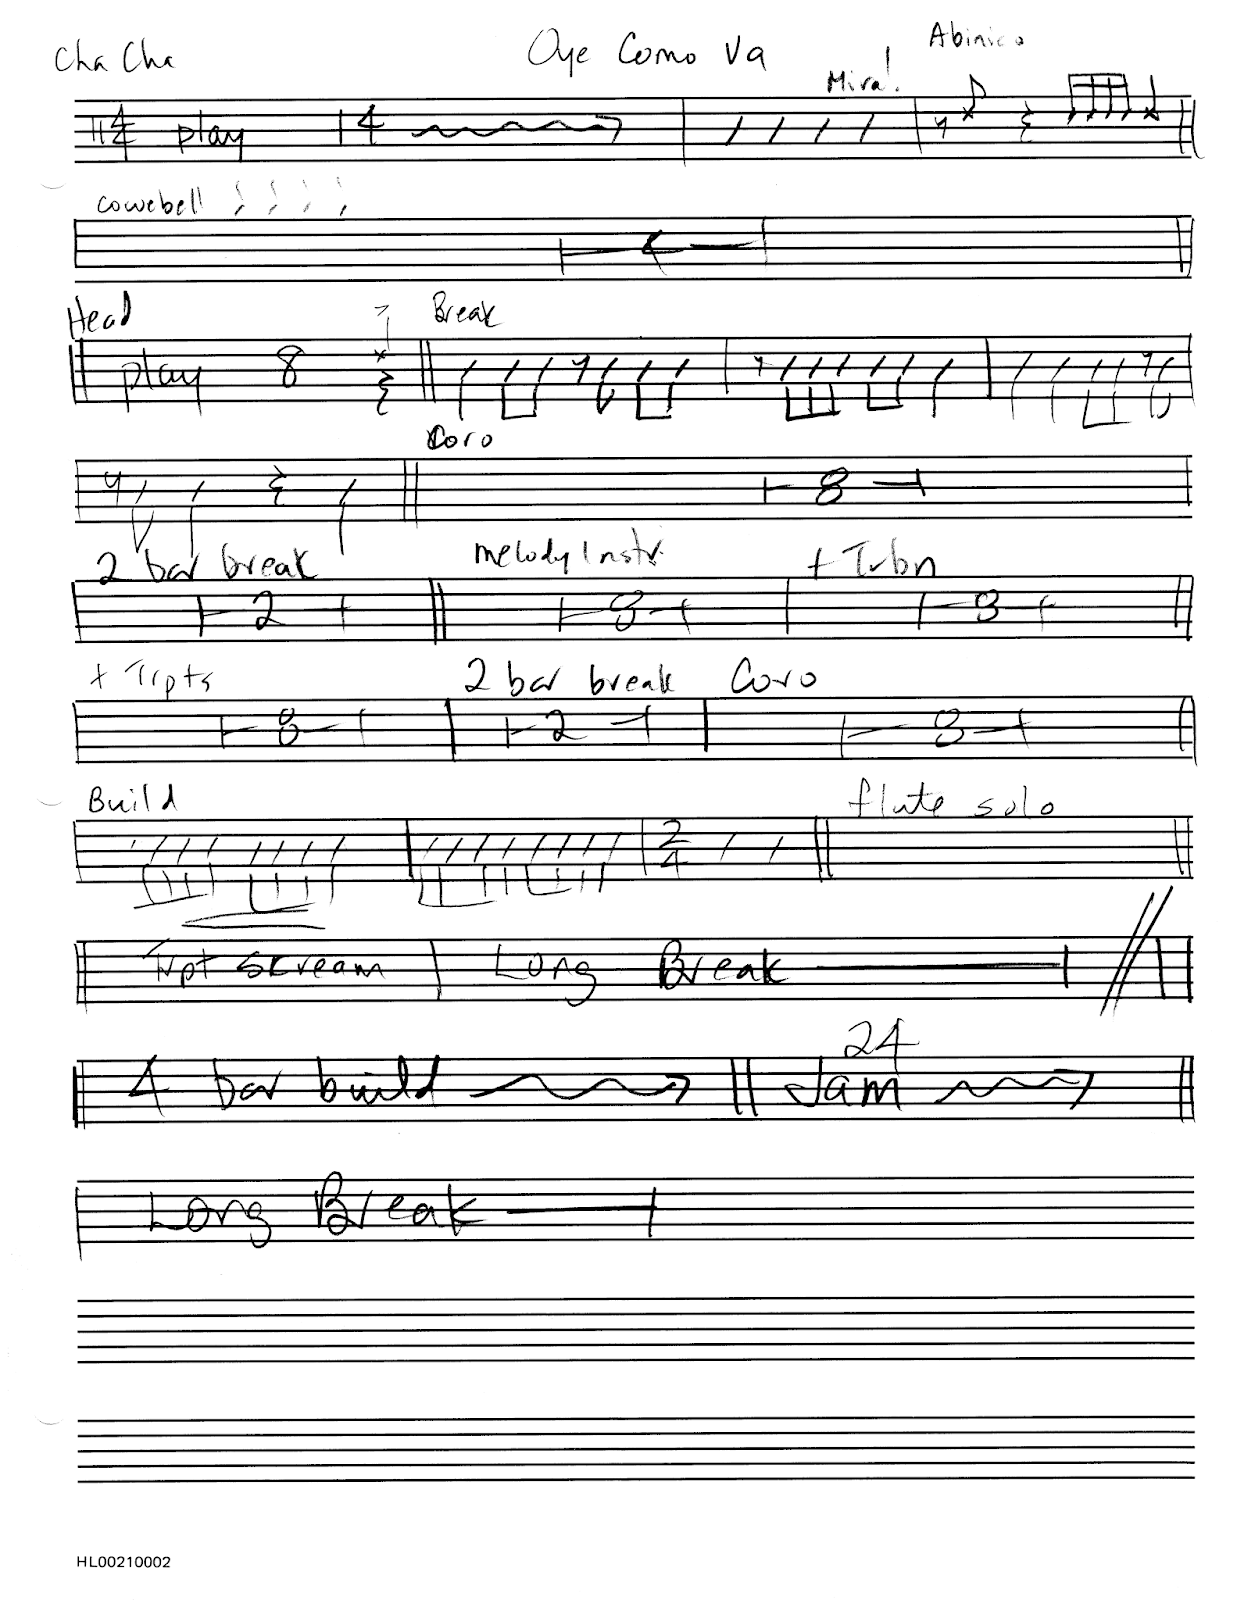 Cha Cha Oye Como Va Abinico
Mira!
4 play 4
cowebell
Head Break
play 8
Coro
8
2 bar break melody Instr. + Trbn
2 8 8
+ Trpts 2 bar break Coro
8 2 8
Build flute solo
2 4
Trpt skream Long Break
24
4 bar build Jam
Long Break
HL00210002